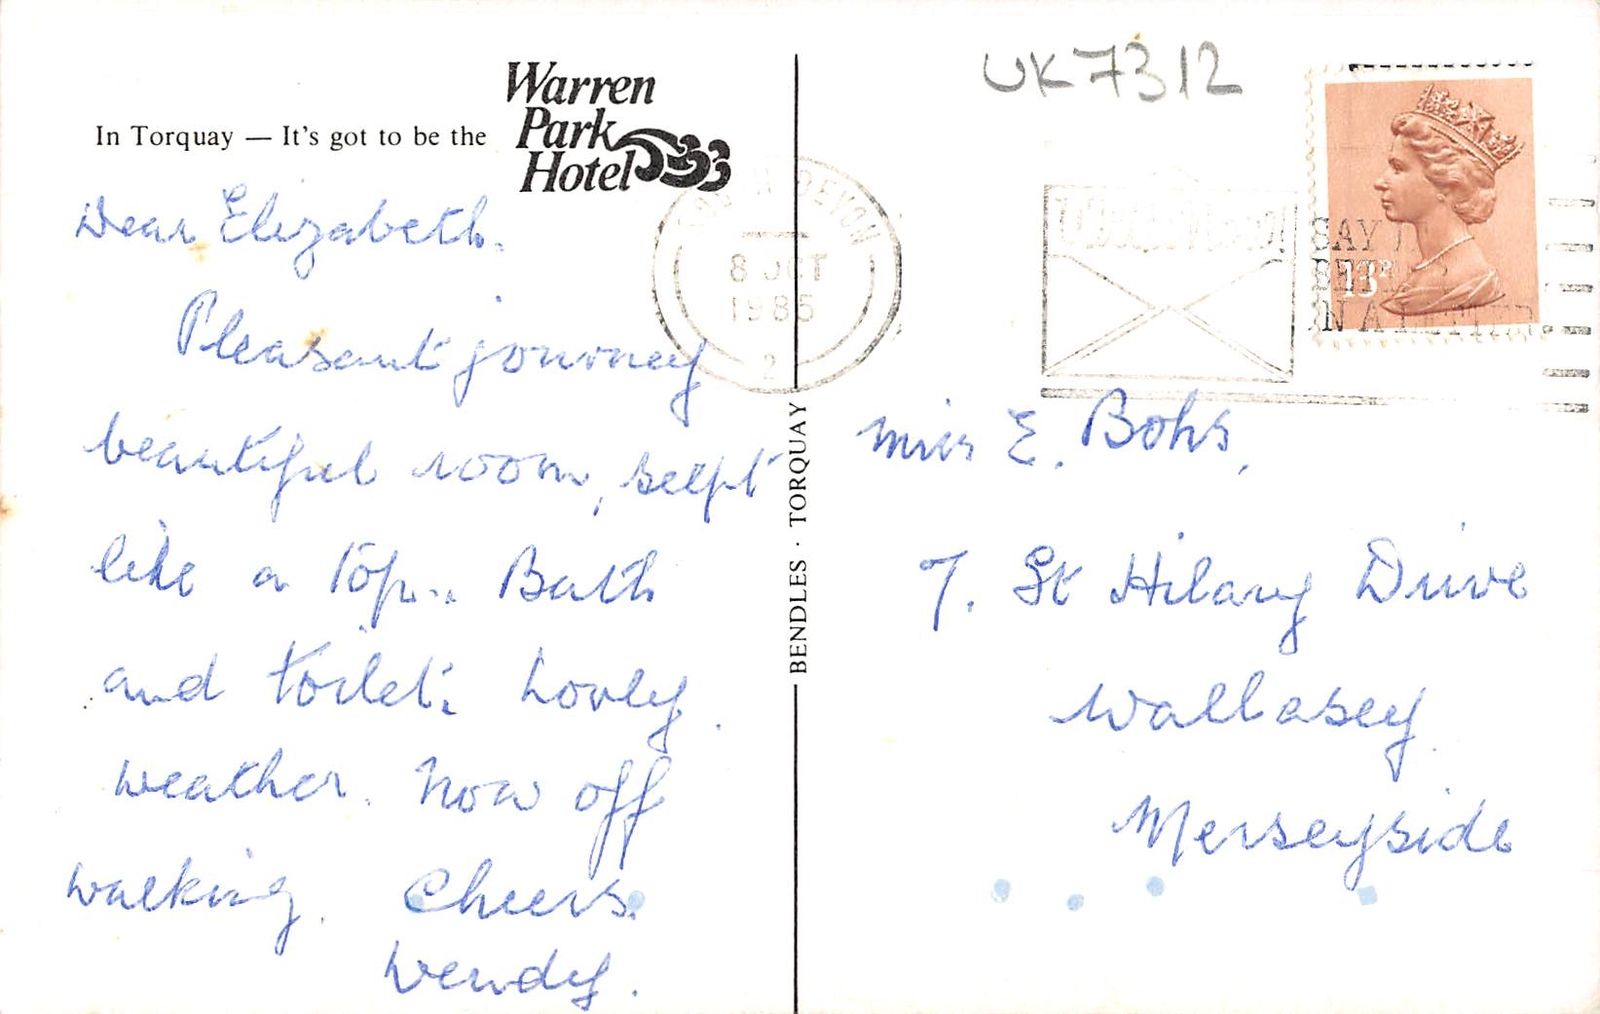 UK7312
In Torquay — It's got to be the
Warren
Park
Hotel
Dear Elizabeth.
Pleasant journey
beautiful room, selpt
like a top.. Bath
and toilet. Lovely
weather. Now off
walking. Cheers.
Wendy.
BENDLES · TORQUAY
DEVON
8 OCT
1985
2
SAY
IN A LETTER
13P
Miss E. Bohs,
7. St Hilary Drive
Wallasey
Merseyside